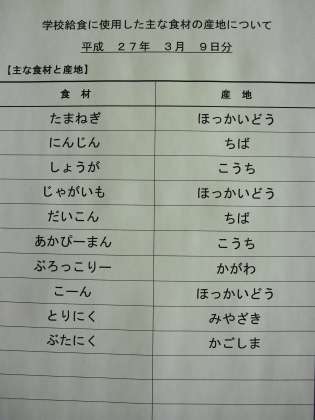 学校給食に使用した主な食材の産地について
平成 27年 3月 9日分
【主な食材と産地】
食材 産地
たまねぎ ほっかいどう
にんじん ちば
しょうが こうち
じゃがいも ほっかいどう
だいこん ちば
あかぴーまん こうち
ぶろっこりー かがわ
こーん ほっかいどう
とりにく みやざき
ぶたにく かごしま